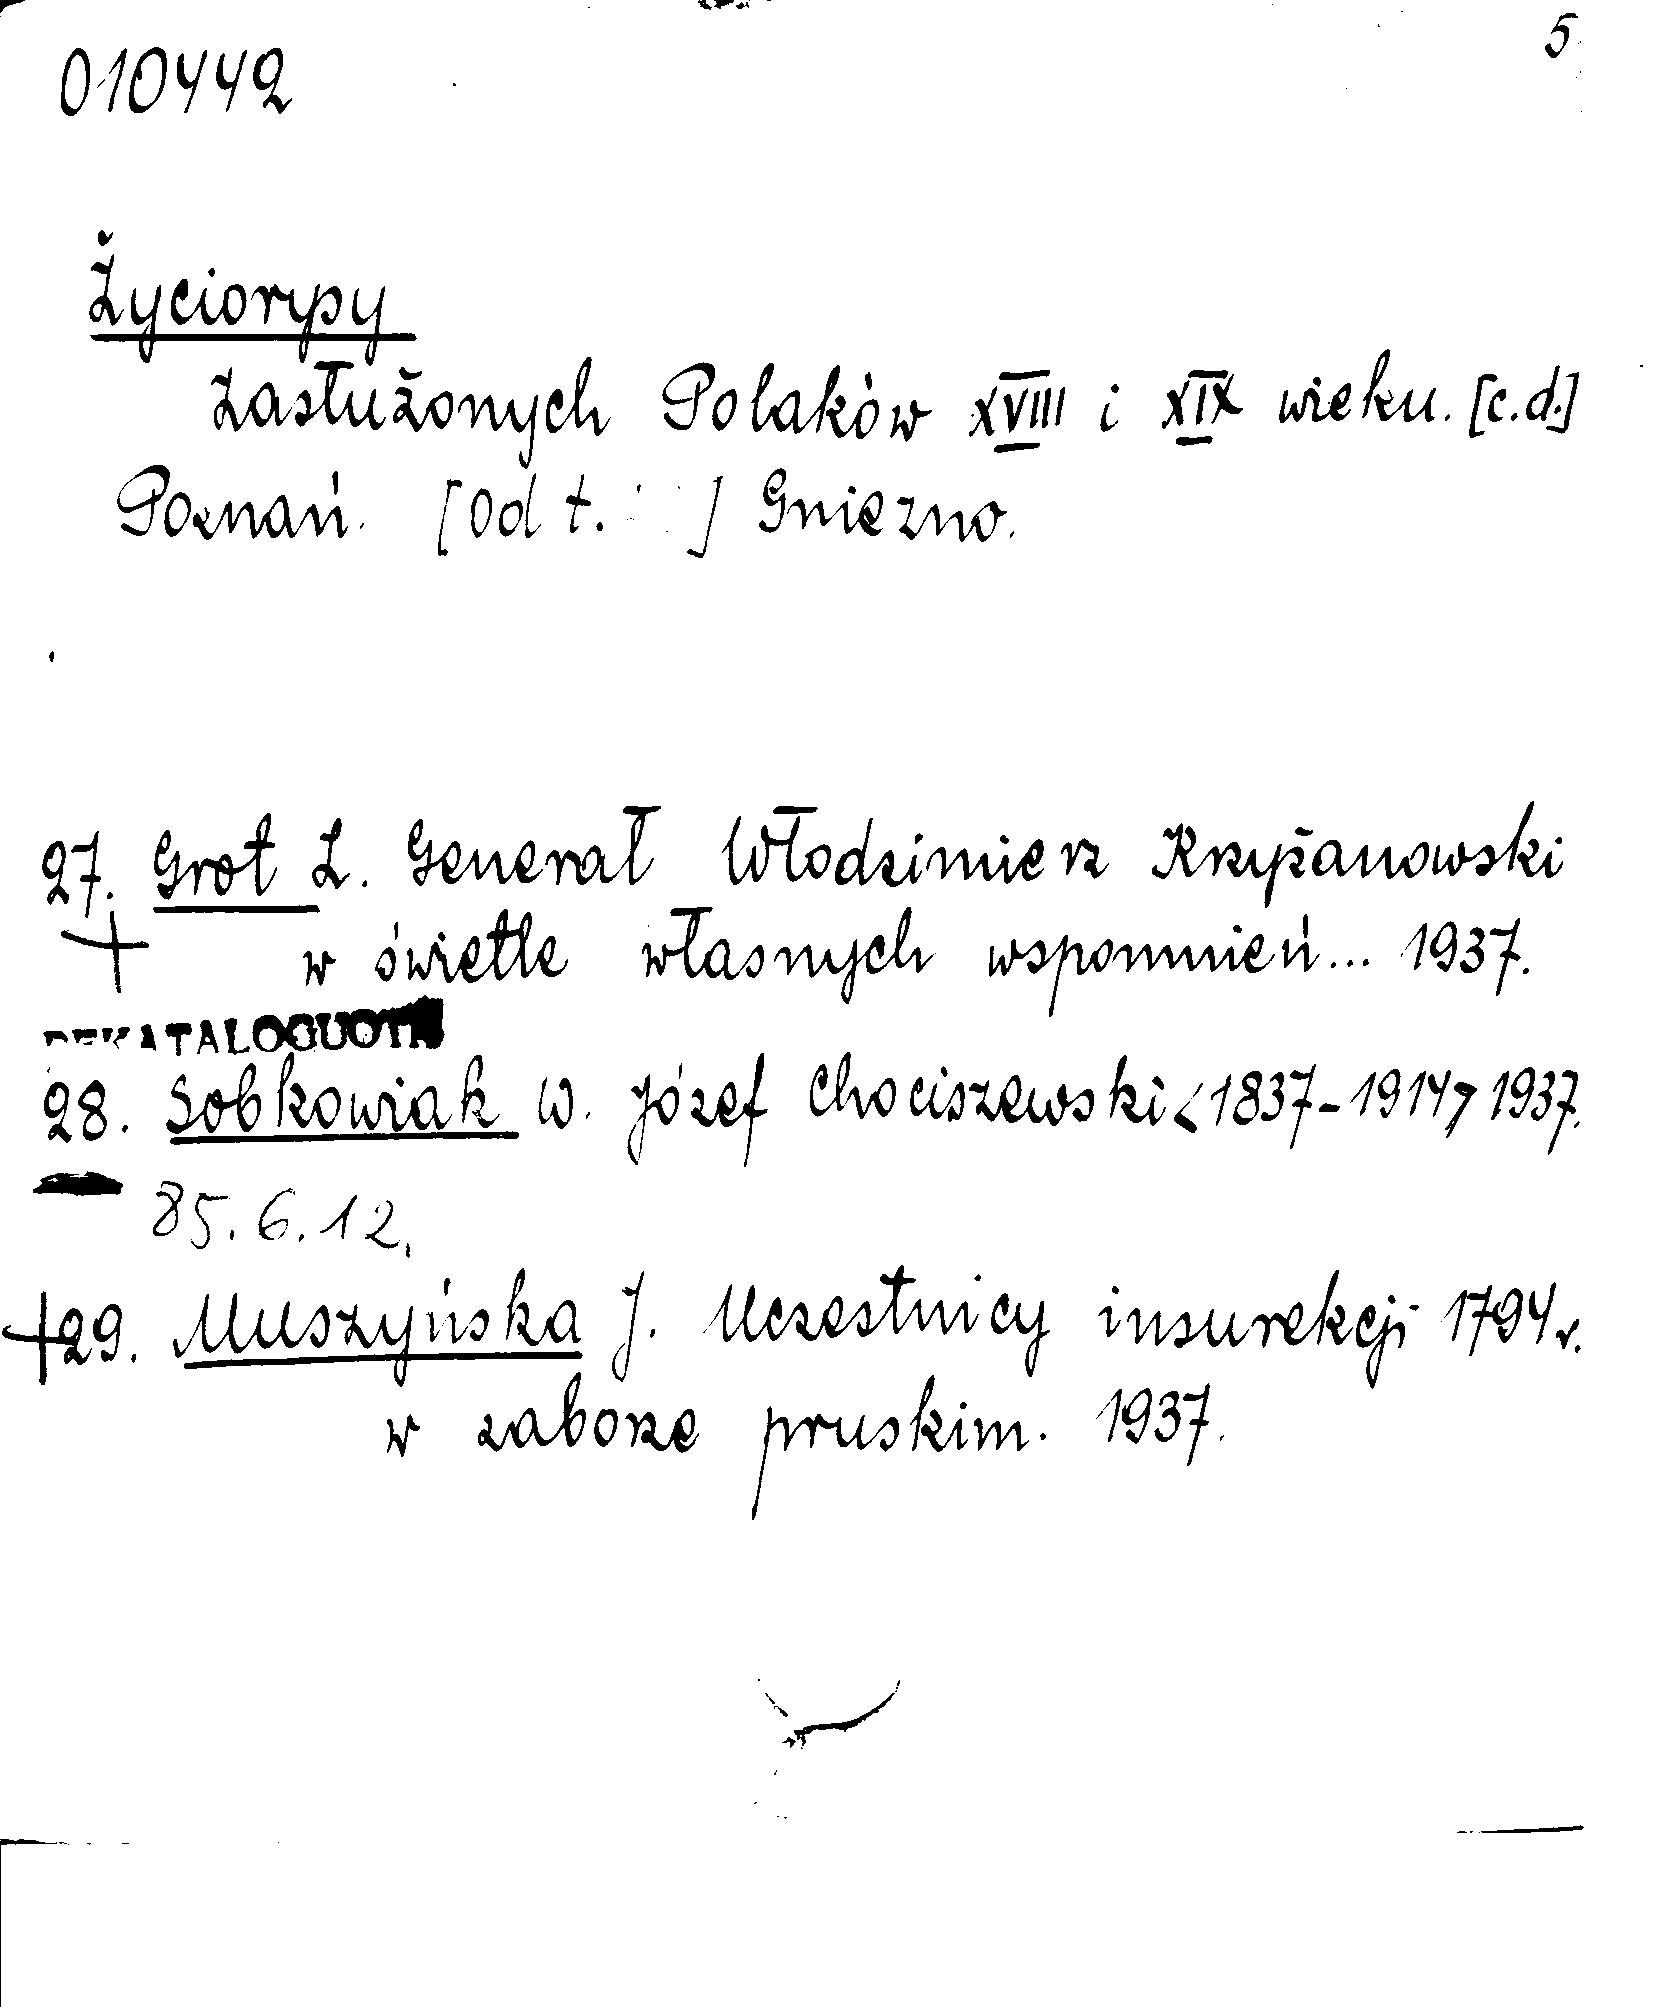 5
010442
Życiorysy
zasłużonych Polaków XVIII i XIX wieku. [c.d.]
Poznań. [Od t. ] Gniezno.
27. Grot Z. Generał Włodzimierz Krzyżanowski
w świetle własnych wspomnień... 1937.
28. Sobkowiak W. Józef Chociszewski <1837-1914> 1937.
85.6.12.
+29. Muszyńska J. Uczestnicy insurekcji 1794 r.
w zaborze pruskim. 1937.